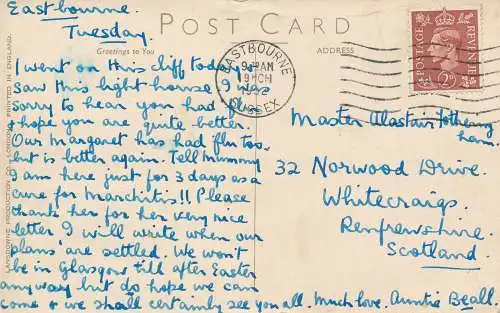 Eastbourne.
Tuesday.
POST CARD
Greetings to You
ADDRESS
I went on this cliff today &
saw this light house. I was
sorry to hear you had flu
& hope you are quite better.
Our Margaret has had flu too,
but is better again. Tell Mummy
I am here just for 3 days as a
cure for Marchitis!! Please
thank her for her very nice
letter. I will write when our
plans are settled. We won't
be in Glasgow till after Easter
anyway but do hope we can
come & we shall certainly see you all. Much love. Auntie Beall.
Master Alastair Fothering
ham.
32 Norwood Drive.
Whitecraigs.
Renfrewshire.
Scotland.
EASTBOURNE
SUSSEX
POSTAGE
REVENUE
2D
LANSDOWNE PRODUCTION CO., LONDON. PRINTED IN ENGLAND.